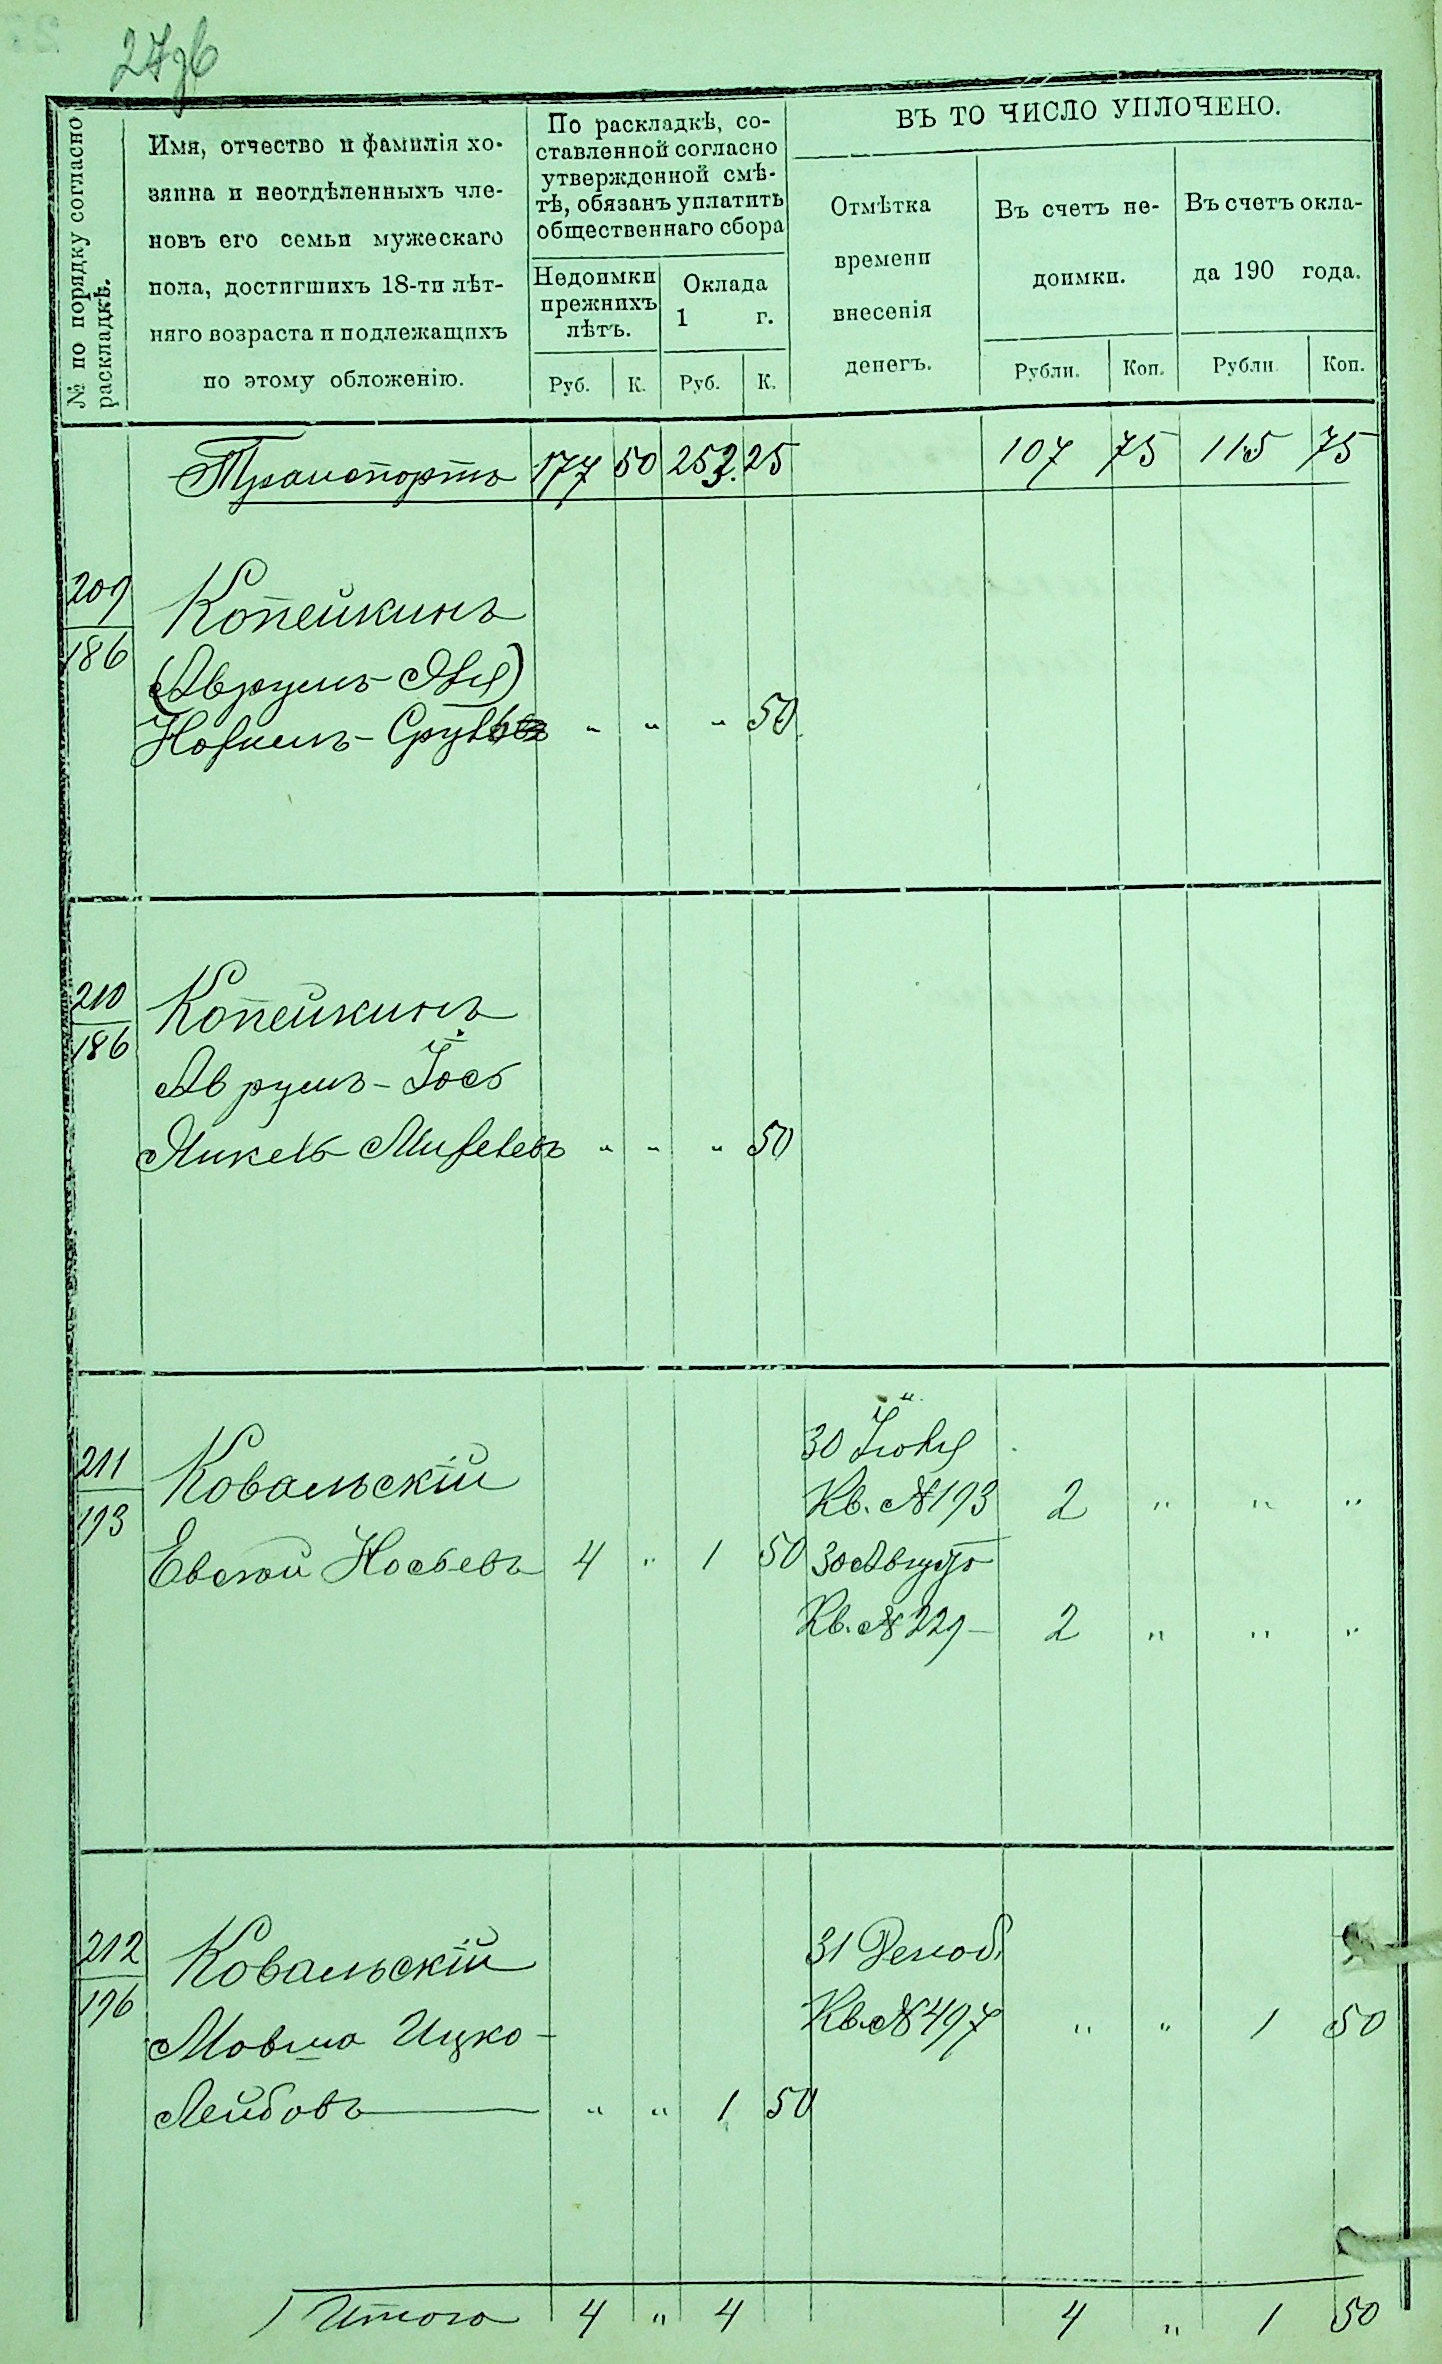 27об
№ по порядку согласно
раскладкѣ.
Имя, отчество и фамилія хо-
зяина и неотдѣленныхъ чле-
новъ его семьи мужескаго
пола, достигшихъ 18-ти лѣт-
няго возраста и подлежащихъ
по этому обложенію.
По раскладкѣ, со-
ставленной согласно
утвержденной смѣ-
тѣ, обязанъ уплатить
общественнаго сбора
Недоимки
прежнихъ
лѣтъ.
Оклада
1 г.
Руб. К. Руб. К.
ВЪ ТО ЧИСЛО УПЛОЧЕНО.
Отмѣтка
времени
внесенія
денегъ.
Въ счетъ не-
доимки.
Въ счетъ окла-
да 190 года.
Рубли. Коп. Рубли. Коп.
Транспортъ 177 50 252. 25 107 75 115 75
209
186
Копейкинъ
(Аврумъ-
" " " 50
210
186
Копейкинъ
Аврумъ-Іось
Янкель " " " 50
211
193
Ковальскій
30 Іюля
Кв. № 193 2 " " "
Евсей Носьевъ 4 " 1 50 30 Августа
Кв. № 229 2 " " "
212
196
Ковальскій
31 Декаб.
Кв. № 497 " " 1 50
Мовша Ицко-
Лейбовъ " " 1 50
Итого 4 " 4 4 " 1 50